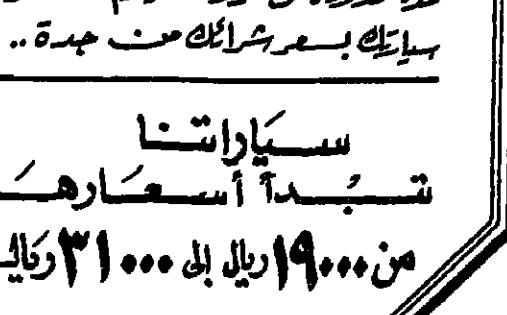 سيارتك بسعر شرائك من جدة ..
سيارات​نا
تبدأ أسعارها
من ١٩٠٠٠ ريال إلى ٣١٠٠٠ ريال